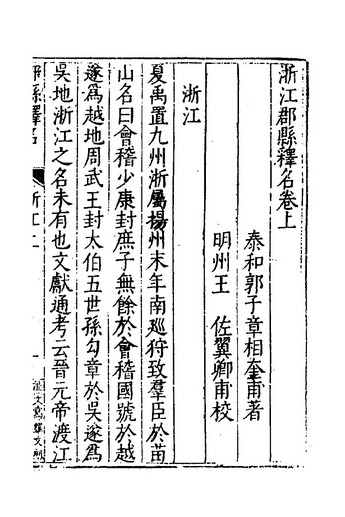 浙江郡縣釋名卷上
泰和郭子章相奎甫著
明州王　佐翼卿甫校
浙江
夏禹置九州浙屬揚州末年南巡狩致羣臣於苗
山名曰會稽少康封庶子無餘於會稽國號於越
遂為越地周武王封太伯五世孫勾章於吳遂為
吳地浙江之名未有也文獻通考云晉元帝渡江
郡縣釋名
浙江上
一